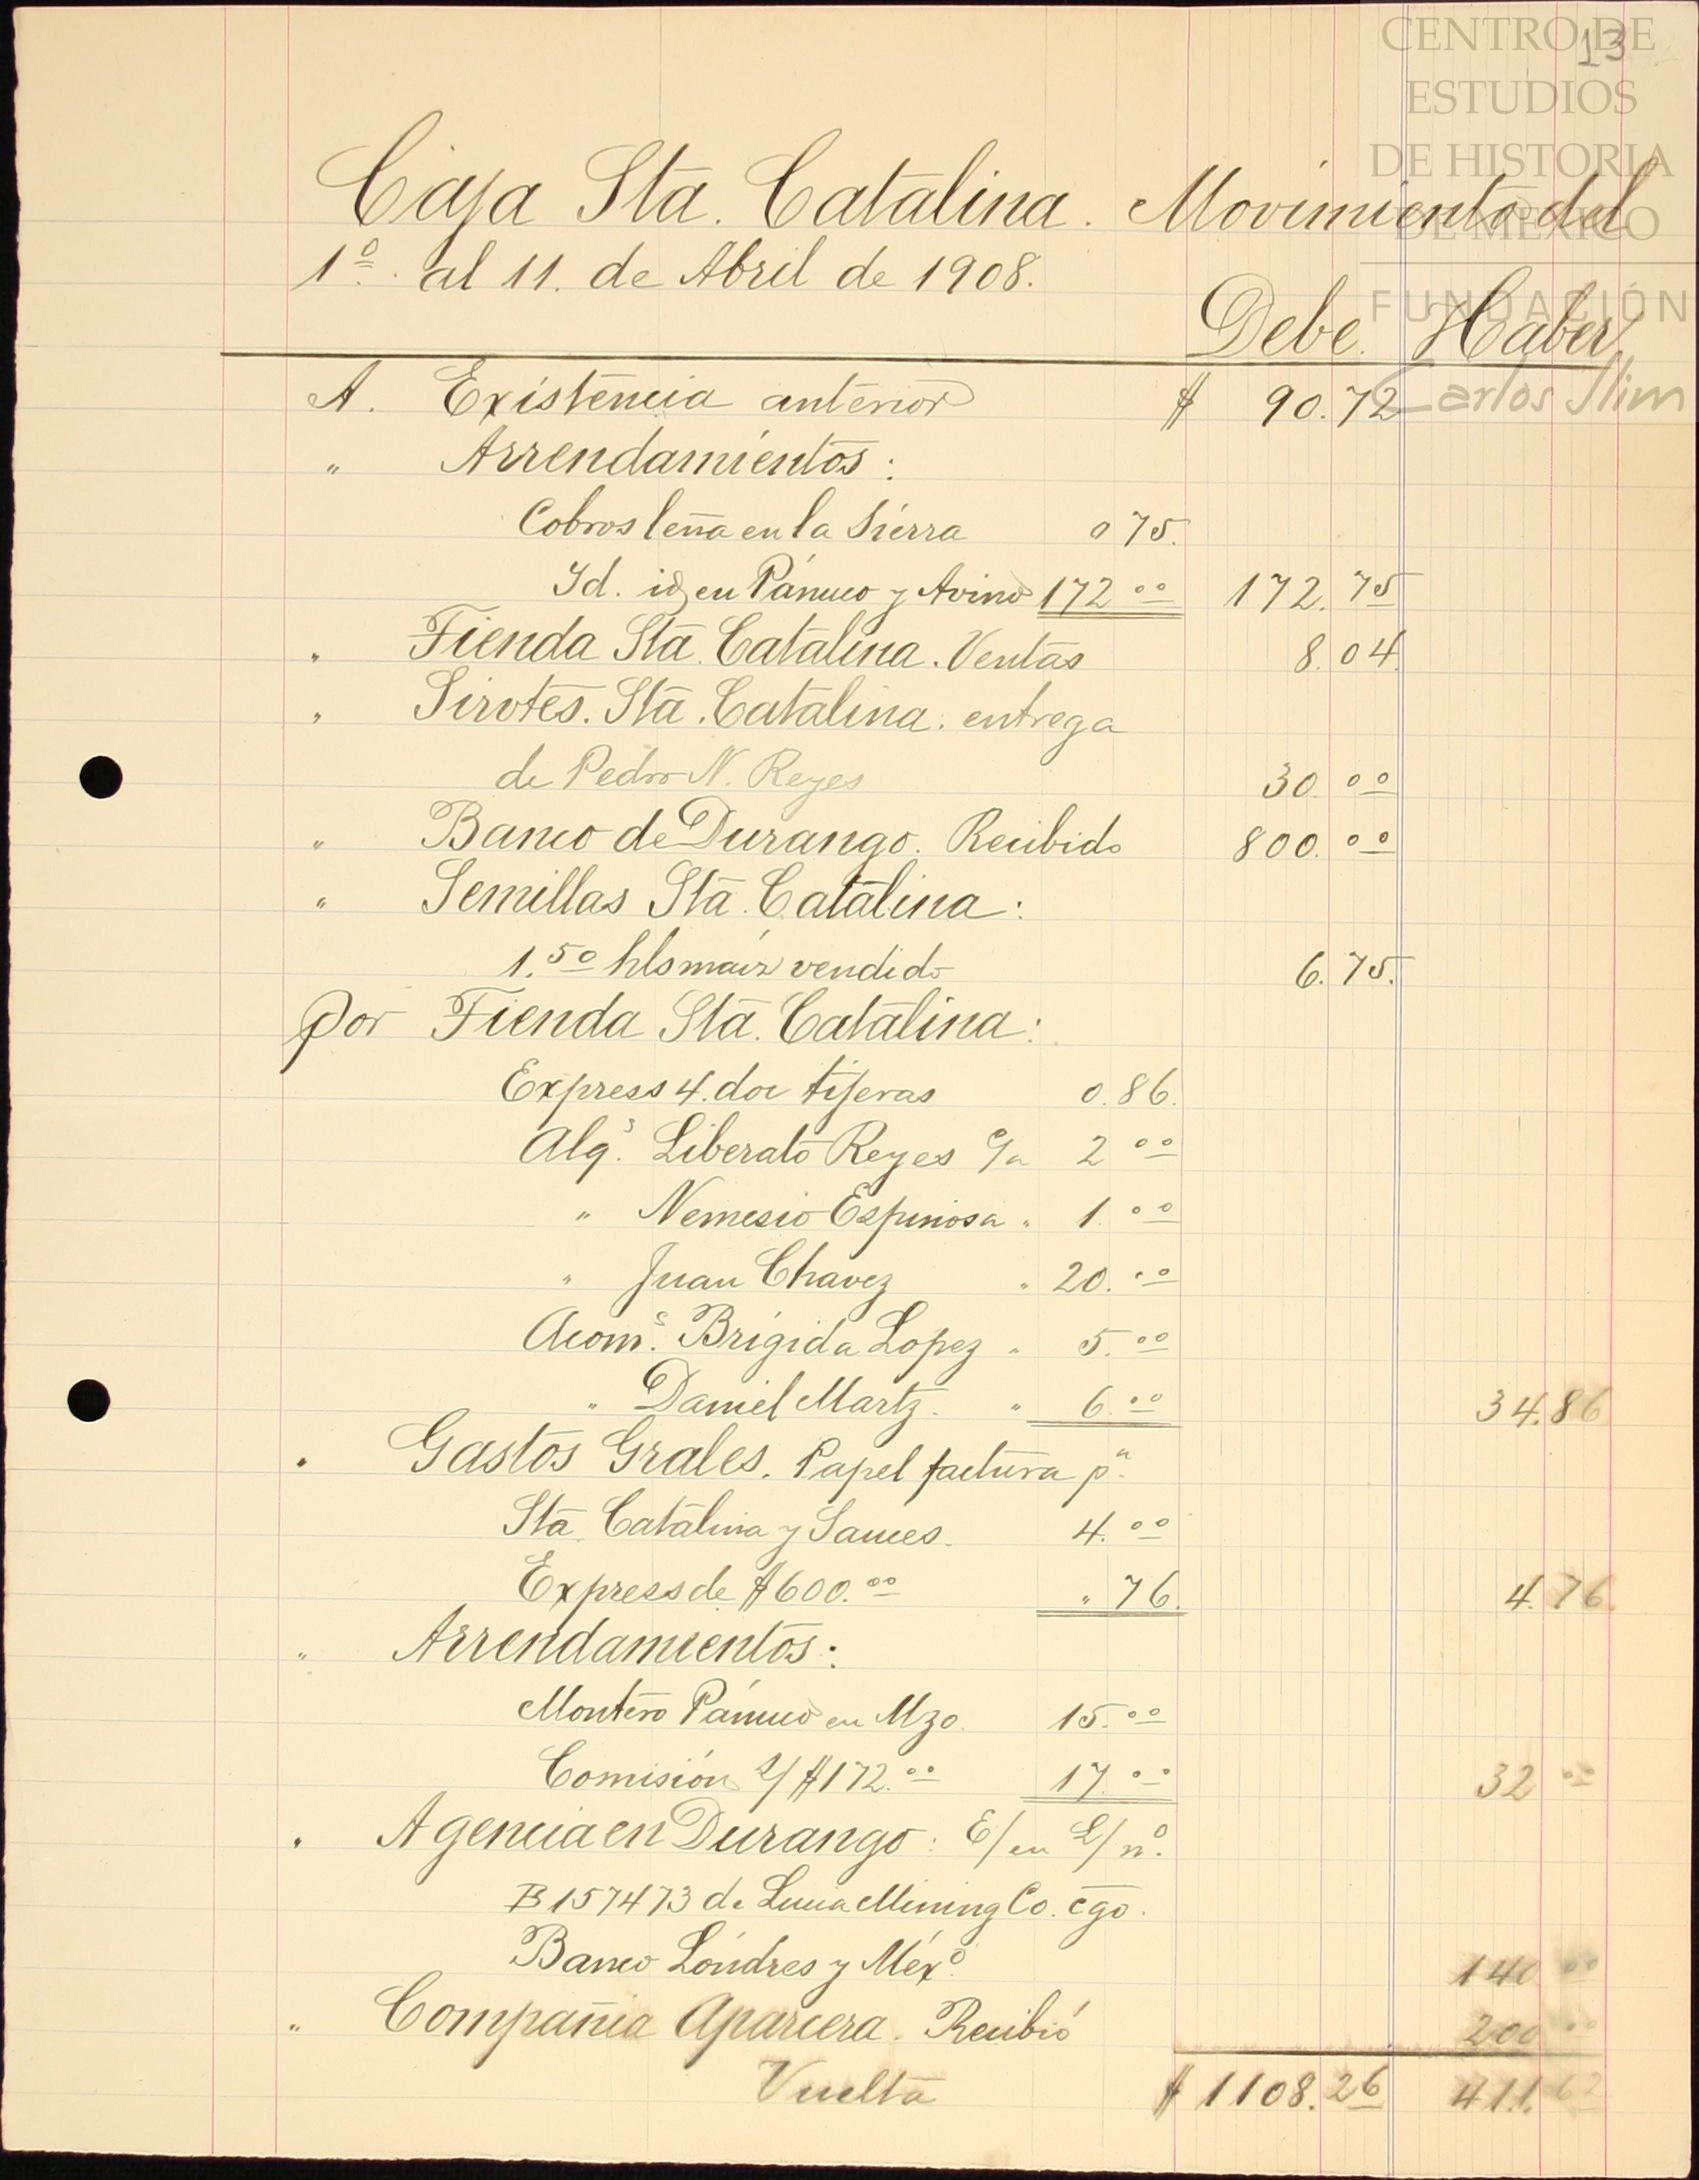 CENTRO DE
ESTUDIOS
DE HISTORIA
DE MÉXICO
FUNDACIÓN
Carlos Slim
13
Caja Sta. Catalina. Movimiento del
1º. al 11. de Abril de 1908.
Debe. Haber.
A. Existencia anterior $ 90.72
" Arrendamientos:
Cobros leña en la Sierra 0 75.
Id. id en Pánuco y Avino 172 00 172. 75
" Tienda Sta. Catalina. Ventas 8.04.
" Sirotes. Sta. Catalina. entrega
de Pedro N. Reyes 30. 00
" Banco de Durango. Recibido 800. 00
" Semillas Sta. Catalina:
1.50 hls maiz vendido 6.75.
Por Tienda Sta. Catalina:
Express 4. doc tijeras 0.86.
Alqs. Liberato Reyes c/a 2 00
" Nemesio Espinosa " 1. 00
" Juan Chavez " 20. 00
Acoms. Brígida Lopez " 5. 00
" Daniel Martz. " 6. 00 34.86
" Gastos Grales. Papel factura pa.
Sta. Catalina y Sauces. 4. 00
Express de $600.00 " 76. 4.76.
" Arrendamientos:
Montero Pánuco en Mzo. 15. 00
Comisión s/ $172.00 17. 00 32 00
" Agencia en Durango: E/ en L/ nº.
B 157473 de Lucia Mining Co. cgo.
Banco Lóndres y Méxº. 140 00
" Compañia Aparcera. Recibió 200 00
Vuelta $ 1108.26 411.62